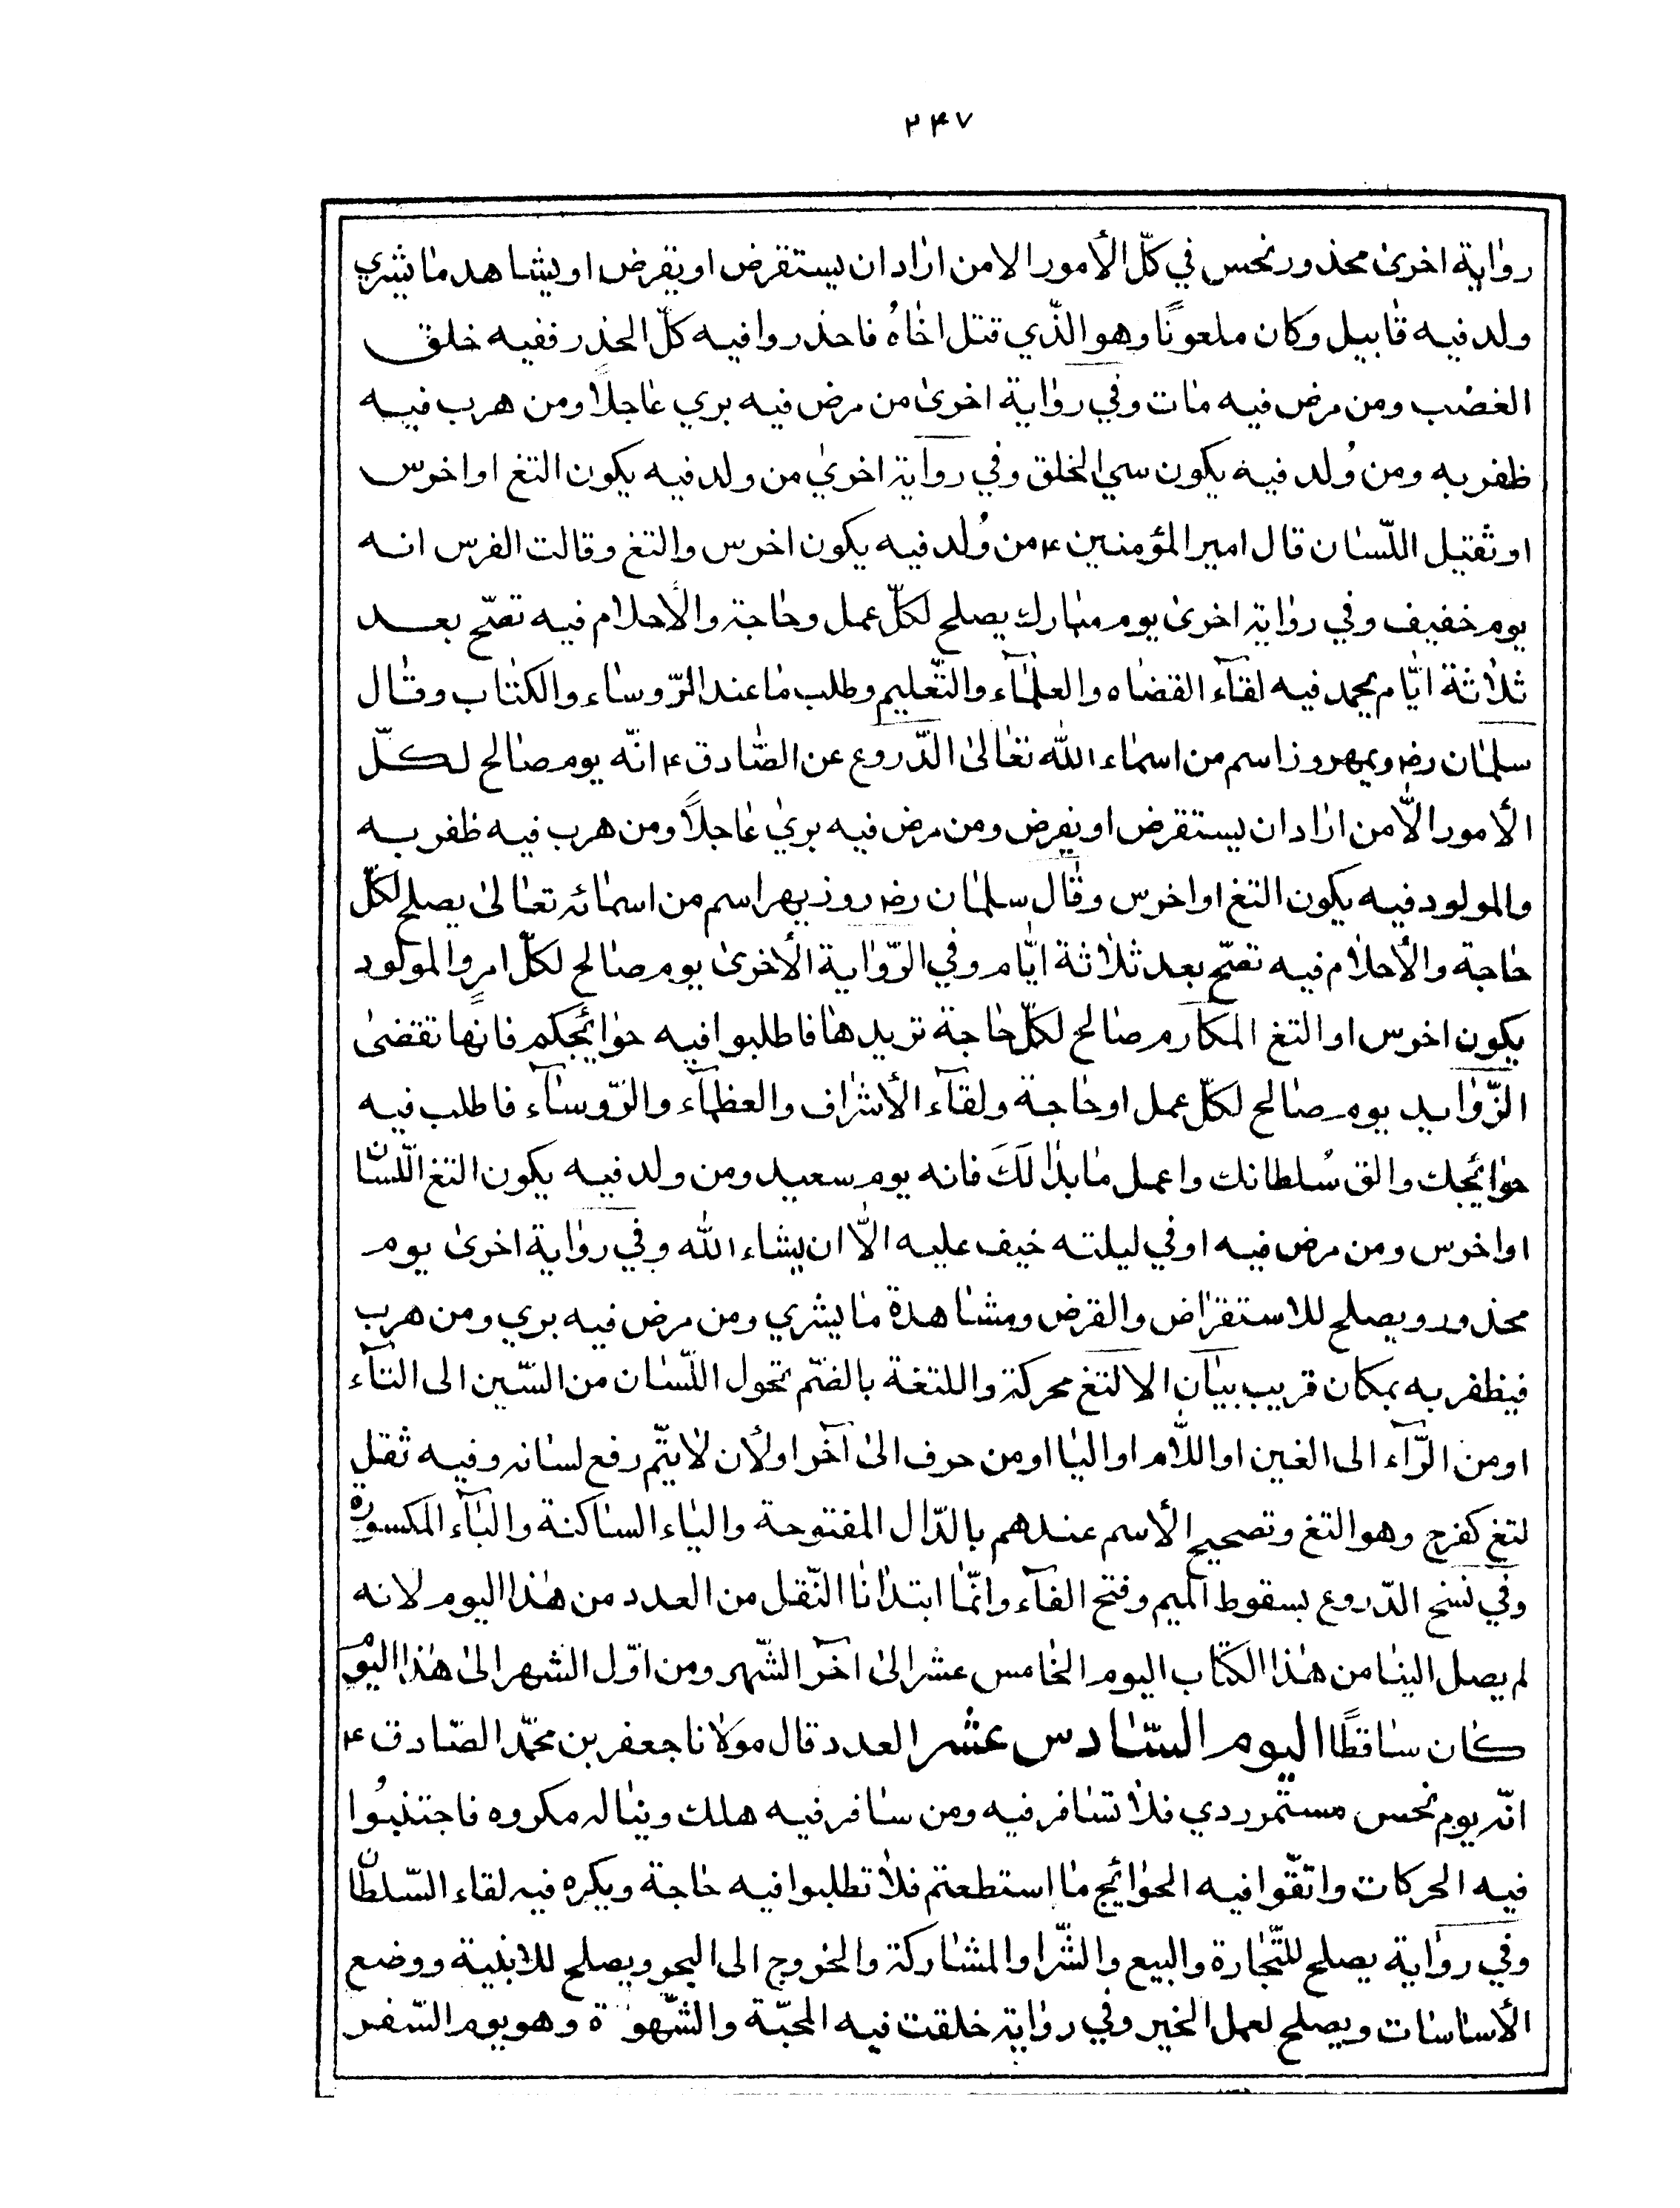 ۲۴۷
رواية اخرى محذور نحس في كلّ الأمور الا من اراد ان يستقرض او يقرض او يشاهد ما يشري
ولد فيه قابيل وكان ملعونًا وهو الذّي قتل اخاهُ فاحذروا فيه كلّ الحذر ففيه خلق
الغضب ومن مرض فيه مات وفي رواية اخرى من مرض فيه بري عاجلًا ومن هرب فيه
ظفر به ومن وُلد فيه يكون سي الخلق وفي رواية اخرى من ولد فيه يكون التغ او اخرس
او ثقيل اللّسان قال امير المؤمنين ۴ من وُلد فيه يكون اخرس والتغ وقالت الفرس انه
يوم خفيف وفي رواية اخرى يوم مبارك يصلح لكلّ عمل وحاجة والأحلام فيه تصّح بعد
ثلاثة ايّام يحمد فيه لقآء القضاه والعلمآء والتّعليم وطلب ما عند الرّوساء والكتاب وقال
سلمان رض ويمهروز اسم من اسماء الله تعالى الدّروع عن الصّادق ۴ انّه يوم صالح لكلّ
الأمور الّا من اراد ان يستقرض او يقرض ومن مرض فيه بري عاجلًا ومن هرب فيه ظفر به
والمولود فيه يكون التغ او اخرس وقال سلمان رض روز بهر اسم من اسمائه تعالى يصلح لكلّ
حاجة والأحلام فيه تصّح بعد ثلاثة ايّام وفي الرّواية الأخرى يوم صالح لكلّ امرٍ والمولود
يكون اخرس او التغ المكارم صالح لكلّ حاجة تريدها فاطلبوا فيه حوائجكم فانها تقضى
الزّوايد يوم صالح لكلّ عمل او حاجة ولقآء الأشراف والعظمآء والرّوسآء فاطلب فيه
حوائجك والق سُلطانك واعمل ما بدا لَكَ فانه يوم سعيد ومن ولد فيه يكون التغ اللّسان
او اخرس ومن مرض فيه او في ليلته خيف عليه الّا ان يشاء الله وفي رواية اخرى يوم
محذور ويصلح للاستقراض والقرض ومشاهدة ما يشري ومن مرض فيه بري ومن هرب
فيظفر به بمكان قريب بيٰان الالتغ محركة واللتغة بالضّم تحول اللّسان من السّين الى التآء
او من الرّآء الى الغين او اللّام او اليا او من حرف الى آخر او لأن لا يتّم رفع لسانه وفيه ثقل
لتغ كفرح وهو التغ وتصحيح الأسم عندهم بالدّال المفتوحة والياء الساكنة والبآء المكسورة
وفي نسخ الدّروع بسقوط الميم وفتح الفآء وانّما ابتدانا النّقل من العدد من هٰذا اليوم لانه
لم يصل الينا من هٰذا الكتاب اليوم الخامس عشر الى آخر الشّهر ومن اوّل الشهر الى هٰذا اليوم
كان ساقطًا اليوم السّادس عشر العدد قال مولانا جعفر بن محمّد الصّادق ۴
انّه يوم نحس مستّمر ردي فلا تسافر فيه ومن سافر فيه هلك ويناله مكروه فاجتنبُوا
فيه الحركات واتقّوا فيه الحوائج ما استطعتم فلا تطلبوا فيه حاجة ويكره فيه لقاء السّلطان
وفي رواية يصلح للتّجارة والبيع والشّرا والمشاركة والخروج الى البحر ويصلح للابنية ووضع
الأساسات ويصلح لعمل الخير وفي رواية خلقت فيه المحبّة والشّهوة وهو يوم السّفر